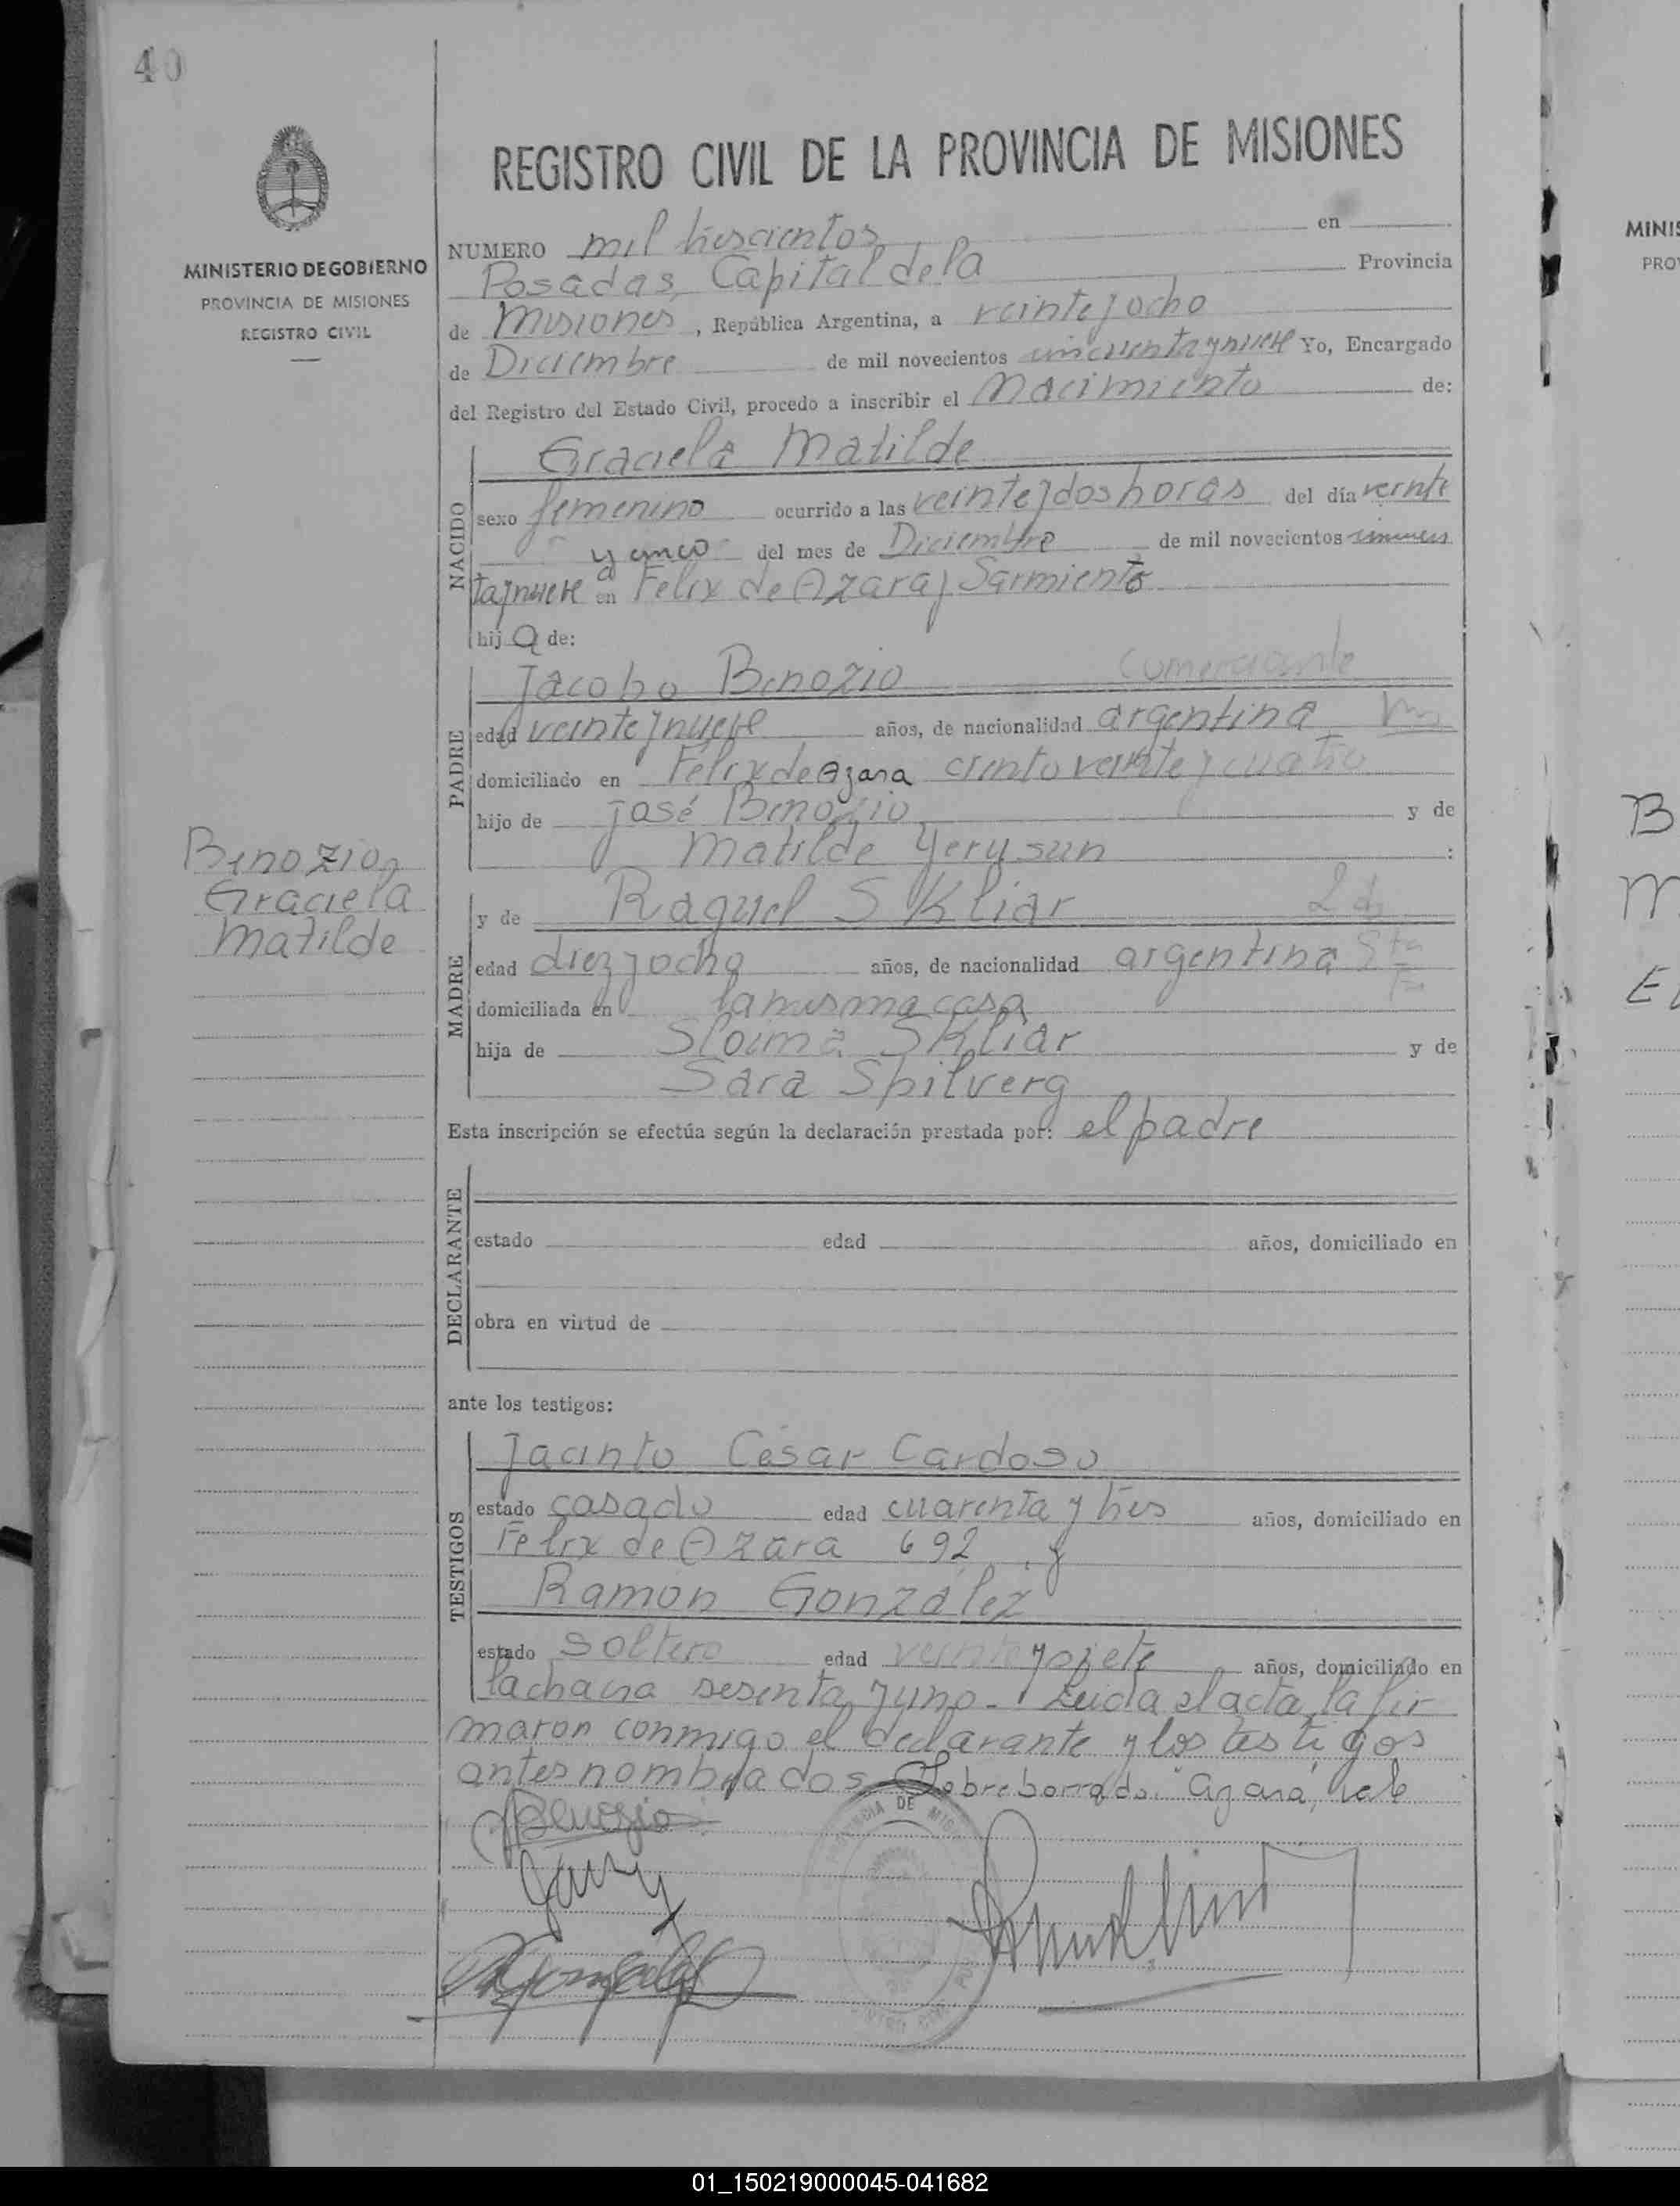 40
MINISTERIO DE GOBIERNO
PROVINCIA DE MISIONES
REGISTRO CIVIL
REGISTRO CIVIL DE LA PROVINCIA DE MISIONES
NUMERO mil trescientos en
Posadas, Capital de la Provincia
de Misiones, República Argentina, a veinte y ocho
de Diciembre de mil novecientos cincuenta y nueve Yo, Encargado
del Registro del Estado Civil, procedo a inscribir el Nacimiento de:
NACIDO
Graciela Matilde
sexo femenino ocurrido a las veinte y dos horas del día veinte
y cinco del mes de Diciembre de mil novecientos cincuen
ta y nueve en Felix de Azara y Sarmiento
hija de:
PADRE
Jacobo Binozio comerciante
edad veinte y nueve años, de nacionalidad argentina
domiciliado en Felix de Azara ciento veinte y cuatro
hijo de José Binozio y de
Matilde Yerusun :
Binozio,
Graciela
Matilde
MADRE
y de Raquel SKliar
edad diez y ocho años, de nacionalidad argentina Sta
Fe
domiciliada en la misma casa
hija de Sloima SKliar y de
Sara Spilverg
Esta inscripción se efectúa según la declaración prestada por: el padre
DECLARANTE
estado edad años, domiciliado en
obra en virtud de
ante los testigos:
TESTIGOS
Jacinto César Cardoso
estado casado edad cuarenta y tres años, domiciliado en
Felix de Azara 692 y
Ramón González
estado soltero edad veinte y siete años, domiciliado en
la chacra sesenta y uno - Leida el acta, la fir
maron conmigo el declarante y los testigos
antes nombrados. Sobre borrado: "Azara", vale
PROVINCIA DE MISIONES
MINIS
PRO
B
M
E
01_150219000045-041682